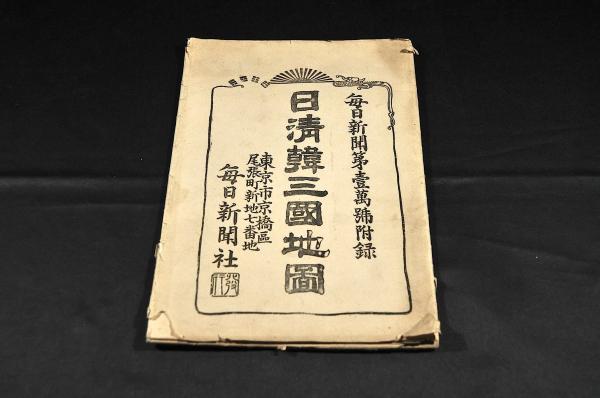 毎日新聞第壹萬號附録
日清韓三國地圖
東京市京橋區
尾張町新地七番地
毎日新聞社